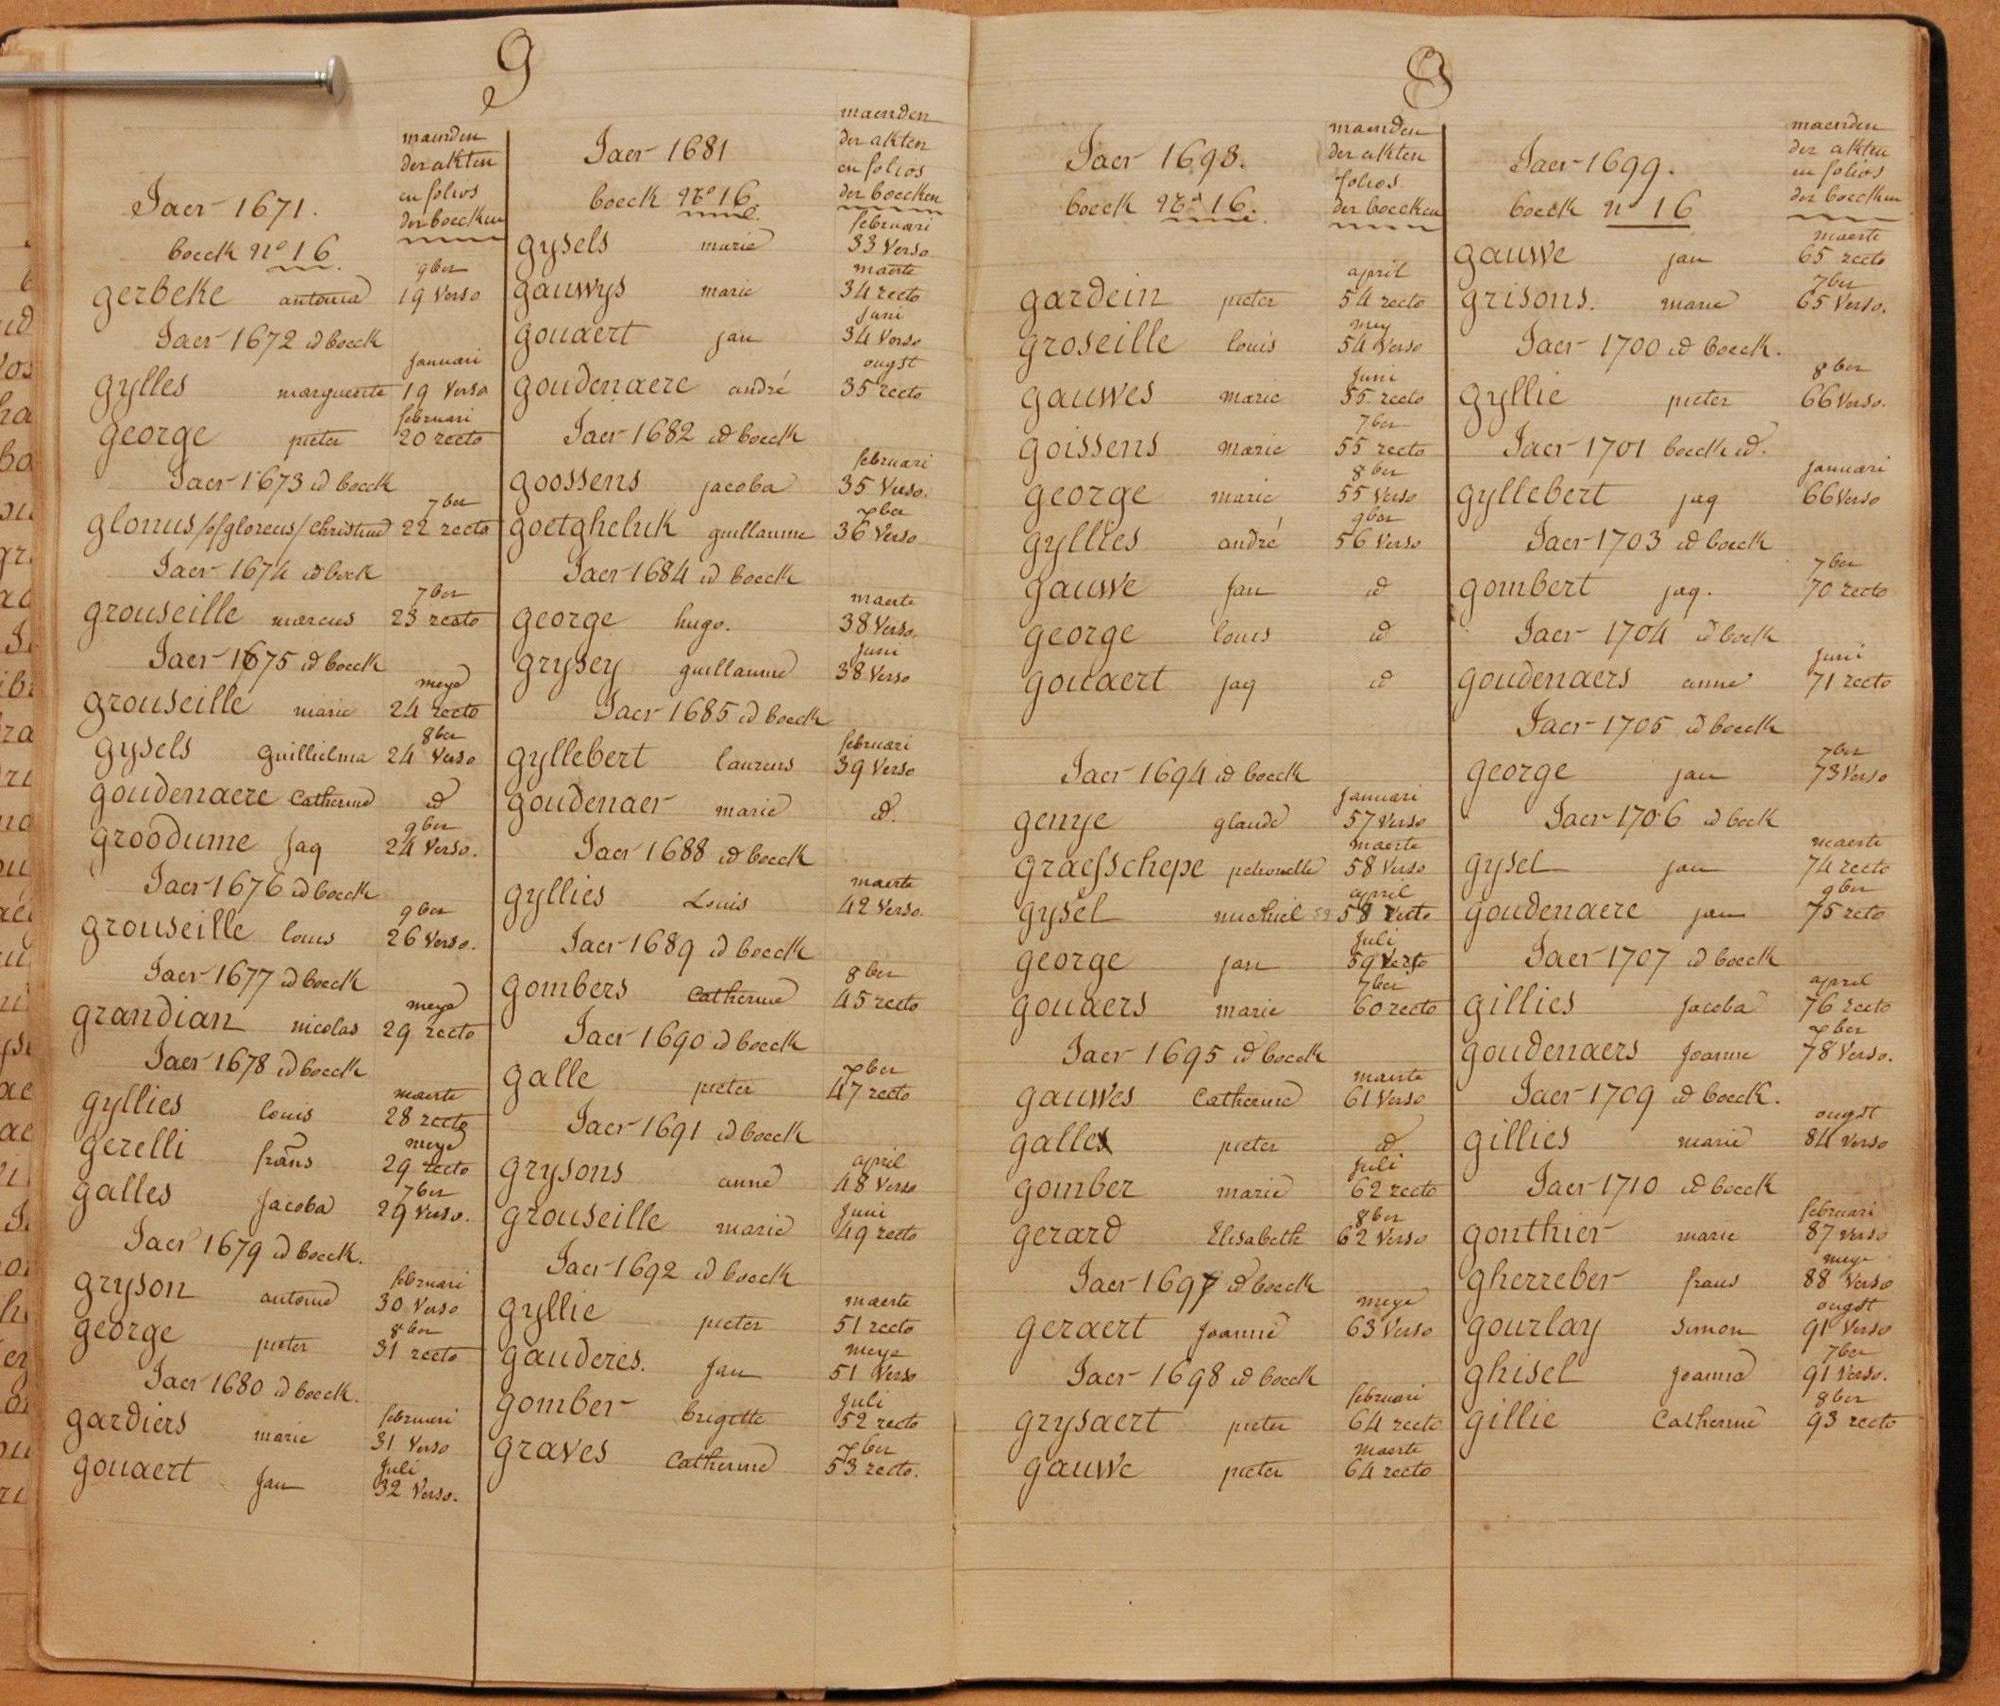 g
maenden
der akten
en folios
der boecken
Jaer 1671.
boeck nº 16
9ber
gerbeke antonia 19 Verso
Jaer 1672 id boeck
Januari
gylles marguerite 19 Verso
februari
george pieter 20 recto
Jaer 1673 id boeck
7ber
glonus /of gloreus/ Christine 22 recto
Jaer 1674 id boek
7ber
grouseille marcus 23 recto
Jaer 1675 id boeck
meye
grouseille marie 24 recto
8ber
gysels guillielma 24 Verso
goudenaere Catherine id
9ber
groodume Jaq 24 Verso.
Jaer 1676 id boeck
9ber
grouseille louis 26 Verso.
Jaer 1677 id boeck
meye
grandian nicolas 29 recto
Jaer 1678 id boeck
maerte
gyllies louis 28 recto
meye
gerelli frans 29 recto
7ber
galles Jacoba 29 Verso.
Jaer 1679 id boeck.
februari
gryson antoine 30 Verso
8ber
george pieter 31 recto
Jaer 1680 id boeck.
februari
gardiers marie 31 Verso
Juli
gouaert Jan 32 Verso.
maenden
der akten
en folios
der boecken
Jaer 1681
boeck nrº 16.
februari
gysels marie 33 Verso
maerte
gauwys marie 34 recto
Juni
gouaert jan 34 Verso
ougst
goudenaere andré 35 recto
Jaer 1682 id boeck
februari
goossens jacoba 35 Verso.
7ber
goetgheluk guillaume 36 Verso
Jaer 1684 id boeck
maerte
george hugo. 38 Verso.
Juni
grysey guillaume 38 Verso
Jaer 1685 id boeck
februari
gyllebert laureus 39 Verso
goudenaer marie id.
Jaer 1688 id boeck
maerte
gyllies Louis 42 Verso.
Jaer 1689 id boeck
8ber
gombers Catherine 45 recto
Jaer 1690 id boeck
7ber
galle pieter 47 recto
Jaer 1691 id boeck
april
grysons anne 48 Verso
Juni
grouseille marie 49 recto
Jaer 1692 id boeck
maerte
gyllie pieter 51 recto
meye
gauderes. Jan 51 Verso
Juli
gomber brigitte 52 recto
7ber
graves Catherine 53 recto.
g
maenden
der akten
folios
der boecken
Jaer 1693.
boeck nrº 16.
april
gardein pieter 54 recto
mey
groseille louis 54 Verso
Juni
gauwes marie 55 recto
7ber
goissens marie 55 recto
8ber
george marie 55 Verso
9ber
gyllies andré 56 Verso
gauwe Jan id
george louis id
gouaert jaq id
Jaer 1694 id boeck
Januari
genye glaude 57 Verso
maerte
graesschepe petronelle 58 Verso
april
gysel michiel 58 recto
Juli
george jan 59 Verso
7ber
gouaers marie 60 recto
Jaer 1695 id boeck
maerte
gauwes Catherine 61 Verso
galles pieter id
Juli
gomber marie 62 recto
8ber
gerard Elisabeth 62 Verso
Jaer 1697 id boeck
meye
geraert Joanne 63 Verso
Jaer 1698 id boeck
februari
grysaert pieter 64 recto
maerte
gauwe pieter 64 recto
maenden
der akten
en folios
der boecken
Jaer 1699.
boeck nº 16
maerte
gauwe jan 65 recto
7ber
grisons. marie 65 Verso.
Jaer 1700 id boeck.
8ber
gyllie pieter 66 Verso.
Jaer 1701 boeck id.
Januari
gyllebert jaq 66 Verso
Jaer 1703 id boeck
7ber
gombert jaq. 70 recto
Jaer 1704 id boek
Juni
goudenaers anne 71 recto
Jaer 1705 id boeck
7ber
george jan 73 Verso
Jaer 1706 id boek
maerte
gysel jan 74 recto
9ber
goudenaere jan 75 recto
Jaer 1707 id boeck
april
gillies Jacoba 76 recto
7ber
goudenaers Joanne 78 Verso.
Jaer 1709 id boeck.
ougst
gillies marie 84 Verso
Jaer 1710 id boeck
februari
gonthier marie 87 Verso
meye
gherreber frans 88 Verso
ougst
gourlay Simon 91 Verso
7ber
ghisel Joanna 91 Verso.
8ber
gillie Catherine 93 recto